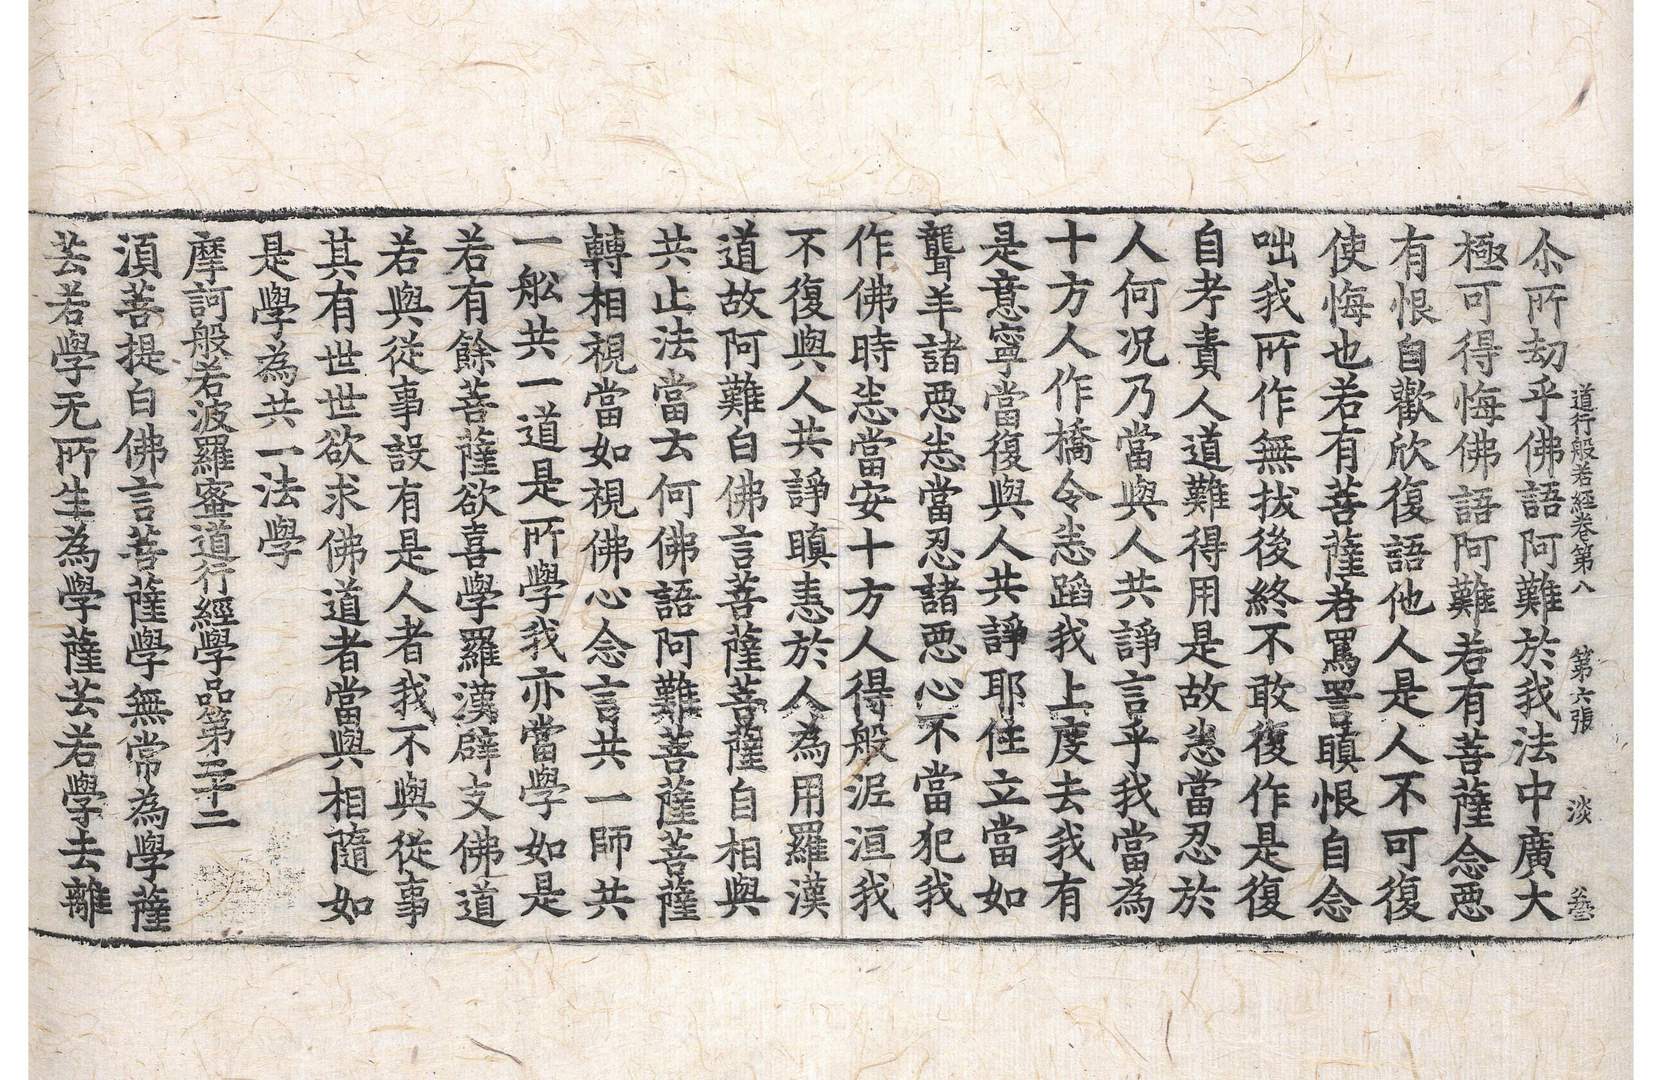 道行般若經卷第八　第六張　淡
尒所劫乎佛語阿難於我法中廣大
極可得悔佛語阿難若有菩薩念惡
有恨自歡欣復語他人是人不可復
使悔也若有菩薩若罵詈瞋恨自念
咄我所作無拔後終不敢復作是復
自考責人道難得用是故恚當忍於
人何況乃當與人共諍言乎我當為
十方人作橋令恚蹈我上度去我有
是意寧當復與人共諍耶住立當如
聾羊諸惡恚當忍諸惡心不當犯我
作佛時恚當安十方人得般泥洹我
不復與人共諍瞋恚於人為用羅漢
道故阿難白佛言菩薩菩薩自相與
共止法當去何佛語阿難菩薩菩薩
轉相視當如視佛心念言共一師共
一舩共一道是所學我亦當學如是
若有餘菩薩欲喜學羅漢辟支佛道
若與從事設有是人者我不與從事
其有世世欲求佛道者當與相隨如
是學為共一法學
摩訶般若波羅蜜道行經學品第二十二
湏菩提白佛言菩薩學無常為學薩
芸若學无所生為學薩芸若學去離